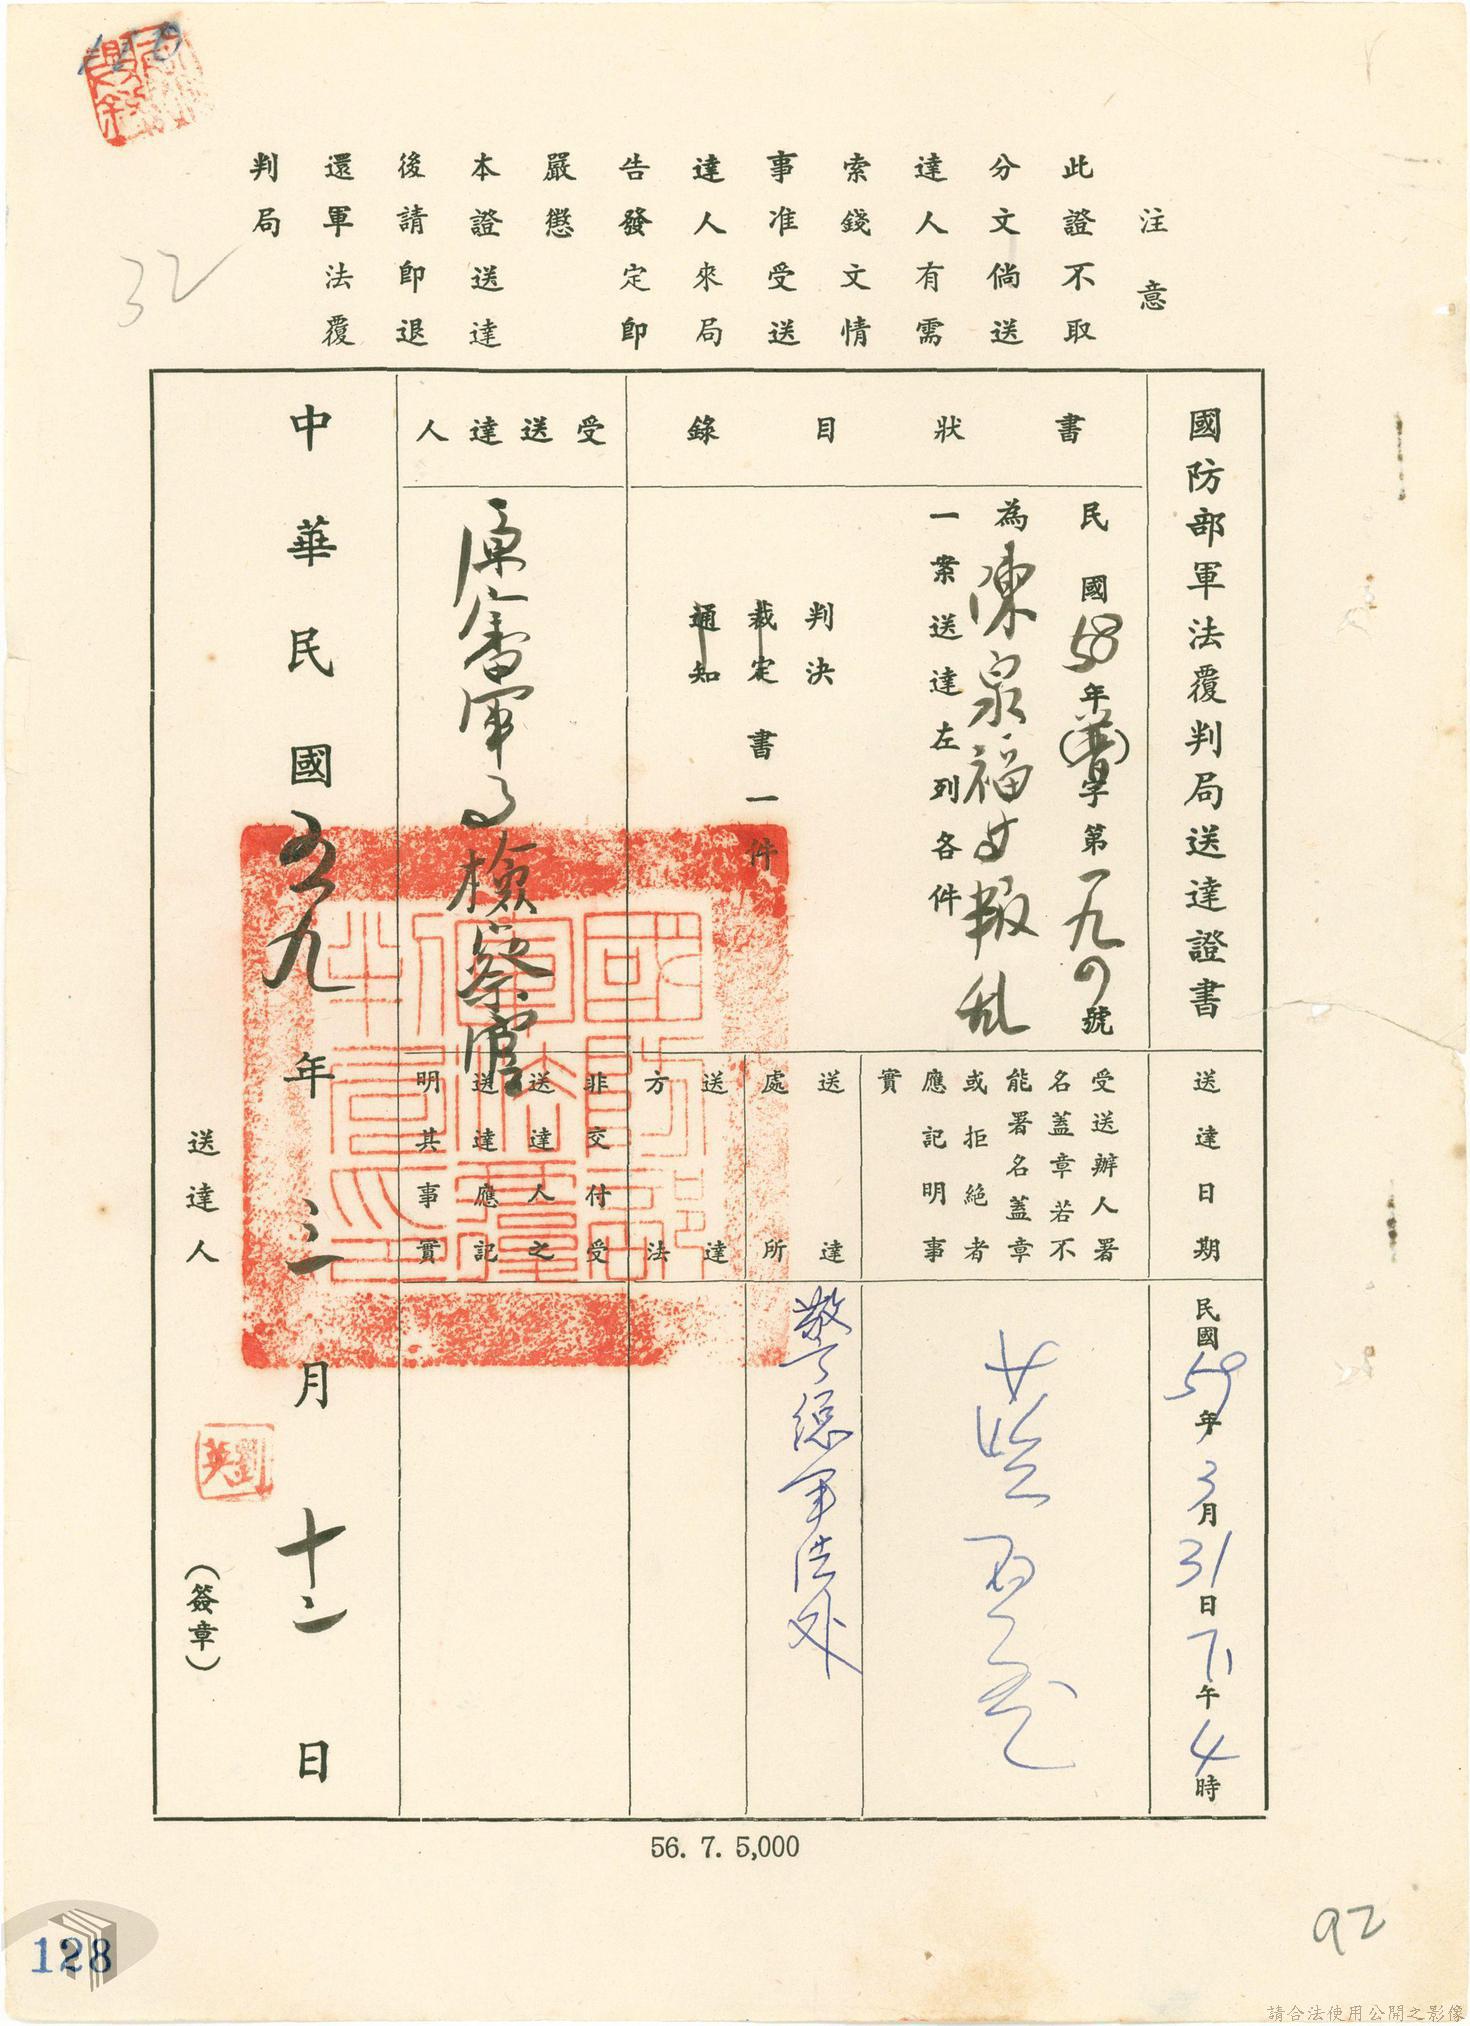 注意
此證不取
分文倘送
達人有需
索錢文情
事准受送
達人來局
告發定即
嚴懲
本證送達
後請即退
還軍法覆
判局
32
國防部軍法覆判局送達證書
書狀目錄
民國58年(普)字第一九四號
為陳泉福等叛亂
一案送達左列各件
判決
裁定
通知
書一件
受送達人
原審軍事檢察官
中華民國五九年三月十二日
送達日期
民國59年3月31日下午4時
受送辦人署
名蓋章若不
能署名蓋章
或拒絕者
應記明事
實
送達
處所
警總軍法處
送達
方法
非交付受
送達人之
送達應記
明其事實
國防部軍法覆判局印
送達人
劉英
(簽章)
56. 7. 5,000
128
92
請合法使用公開之影像